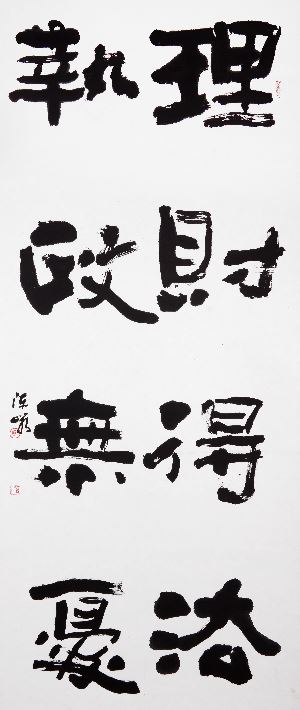 理財得法
執政無憂